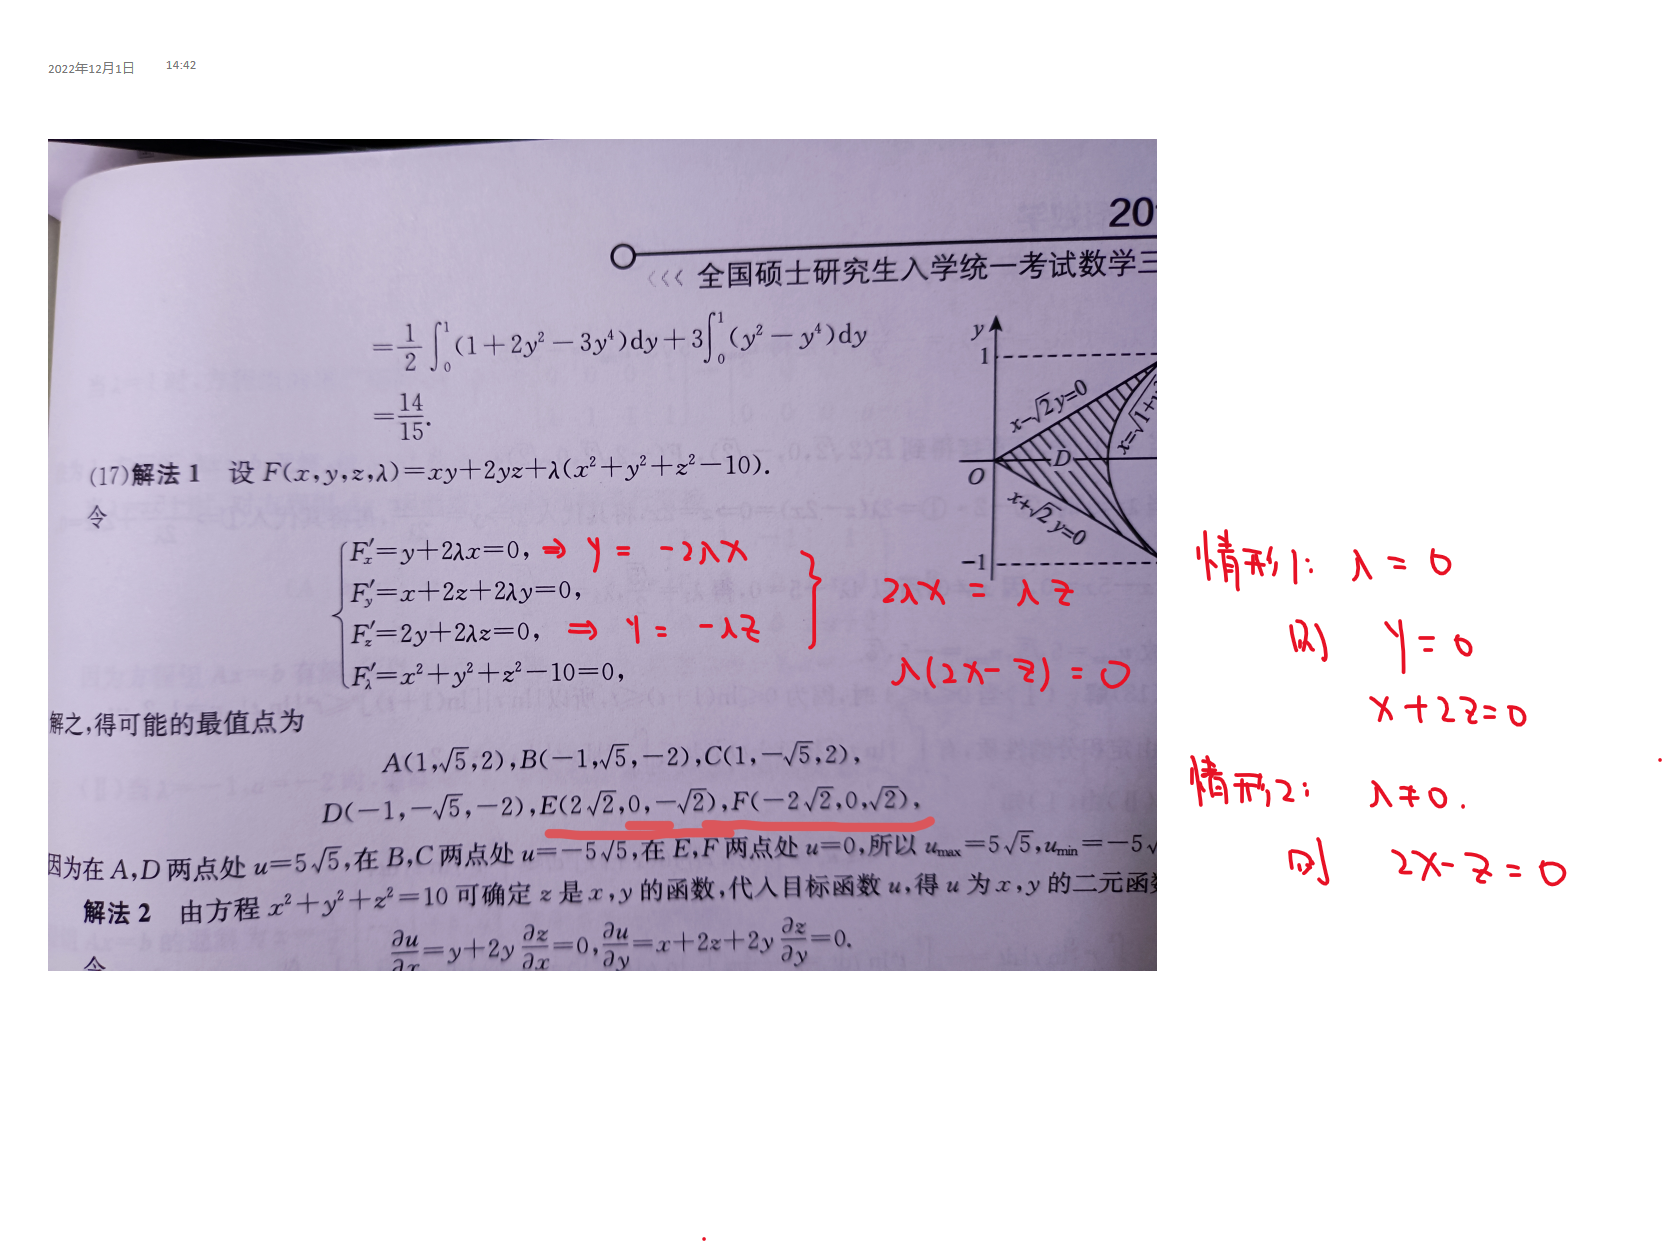 2022年12月1日 14:42
20
<<< 全国硕士研究生入学统一考试数学三
=1/2 ∫₀¹(1+2y²-3y⁴)dy+3∫₀¹(y²-y⁴)dy
=14/15.
y
1
x-√2y=0
x=√1+y
O
D
x+√2y=0
-1
(17)解法1 设 F(x,y,z,λ)=xy+2yz+λ(x²+y²+z²-10).
令
F′ₓ=y+2λx=0, ⇒ y = -2λx
F′y=x+2z+2λy=0,
F′z=2y+2λz=0, ⇒ y = -λz
F′λ=x²+y²+z²-10=0,
2λx = λz
λ(2x-z) = 0
解之,得可能的最值点为
A(1,√5,2),B(-1,√5,-2),C(1,-√5,2),
D(-1,-√5,-2),E(2√2,0,-√2),F(-2√2,0,√2),
因为在 A,D 两点处 u=5√5,在 B,C 两点处 u=-5√5,在 E,F 两点处 u=0,所以 umax=5√5,umin=-5√
解法2 由方程 x²+y²+z²=10 可确定 z 是 x,y 的函数,代入目标函数 u,得 u 为 x,y 的二元函数
令 ∂u/∂x=y+2y ∂z/∂x=0,∂u/∂y=x+2z+2y ∂z/∂y=0.
情形1: λ = 0
则 y = 0
x+2z=0
情形2: λ≠0.
则 2x-z=0